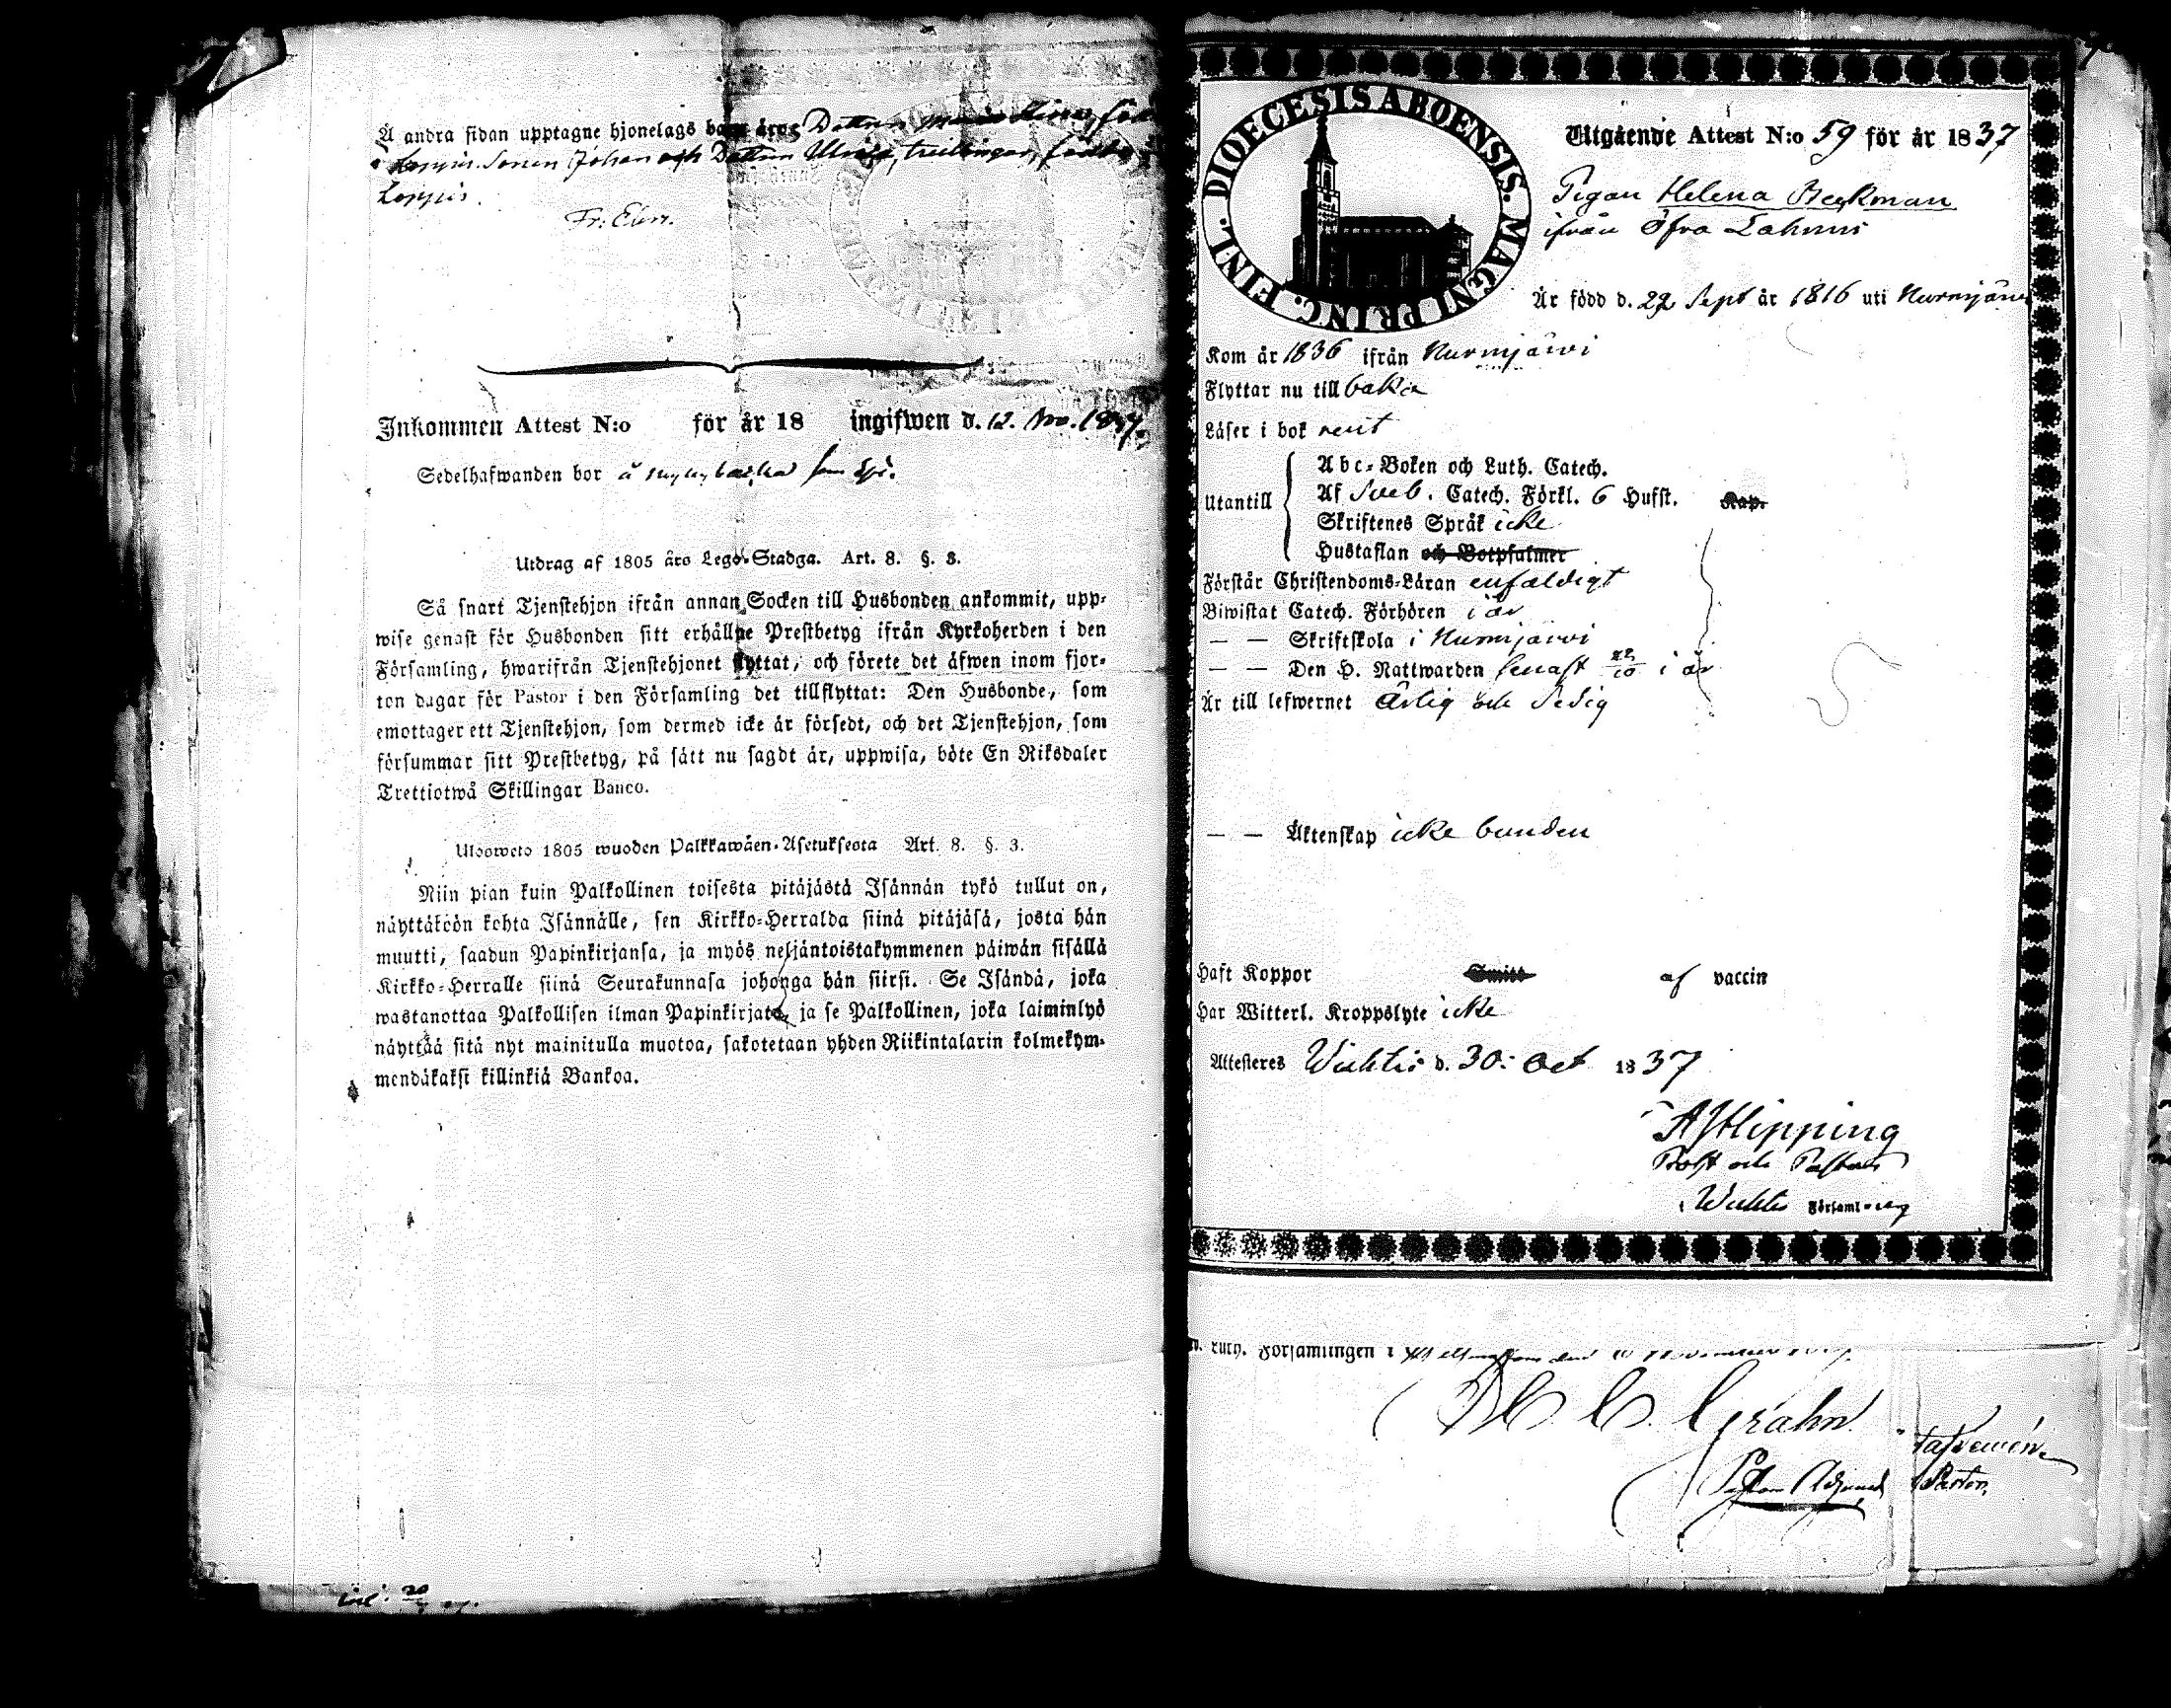 Å andra sidan upptagne hjonelags barn äro: Dottren Maria
Loppis. Sonen Johan och Dottren Ulrica, tvillingar, födde
Loppis.
Fr. Elm.
Inkommen Attest N:o för år 18 ingifwen d. 12. Nov. 1837.
Sedelhafwanden bor å
Utdrag af 1805 års Lego-Stadga. Art. 8. §. 3.
Så snart Tjenstehjon ifrån annan Socken till Husbonden ankommit, upp-
wise genast för Husbonden sitt erhållne Prestbetyg ifrån Kyrkoherden i den
Församling, hwarifrån Tjenstehjonet flyttat, och förete det äfwen inom fjor-
ton dagar för Pastor i den Församling det tillflyttat: Den Husbonde, som
emottager ett Tjenstehjon, som dermed icke är försedt, och det Tjenstehjon, som
försummar sitt Prestbetyg, på sätt nu sagdt är, uppwisa, böte En Riksdaler
Trettiotwå Skillingar Banco.
Ulosweto 1805 wuoden Palkkawäen-Asetuksesta Art. 8. §. 3.
Niin pian kuin Palkollinen toisesta pitäjästä Isännän tykö tullut on,
näyttäköön kohta Isännälle, sen Kirkko-Herralda siinä pitäjäsä, josta hän
muutti, saadun Papinkirjansa, ja myös neljäntoistakymmenen päiwän sisällä
Kirkko-Herralle siinä Seurakunnasa johonga hän siirsi. Se Isändä, joka
wastanottaa Palkollisen ilman Papinkirjata, ja se Palkollinen, joka laiminlyö
näyttää sitä nyt mainitulla muotoa, sakotetaan yhden Riikintalarin kolmekym-
mendäkaksi killinkiä Bankoa.
DIOECESIS ABOENSIS. MAGNI PRINC. FINL.
Utgående Attest N:o 59 för år 1837
Pigan Helena Beckman
ifrån Öfra Lahnus
Är född d. 22 Sept år 1816 uti Nurmijärvi
Kom år 1836 ifrån Nurmijärvi
Flyttar nu till baka
Läser i bok rent
Utantill
Abc-Boken och Luth. Catech.
Af Sveb. Catech. Förkl. 6 Hufst. Kap.
Skriftenes Språk icke
Hustaflan och Botpsalmer
Förstår Christendoms-Läran enfaldigt
Biwistat Catech. Förhören i år
— — Skriftskola i Nurmijärvi
— — Den H. Nattwarden senast 22/10 i år
Är till lefwernet ärlig och sedig
— — Äktenskap icke bunden
Haft Koppor Smitt af vaccin
Har Witterl. Kroppslyte icke
Attesteres Wichtis d. 30: Oct 1837
AJHipping
Prost och Pastor
i Wichtis Församl-ing
Luth. Församlingen i Helsingfors den 10 November
C. Grahn
Pastors Adjunct
Pastor.